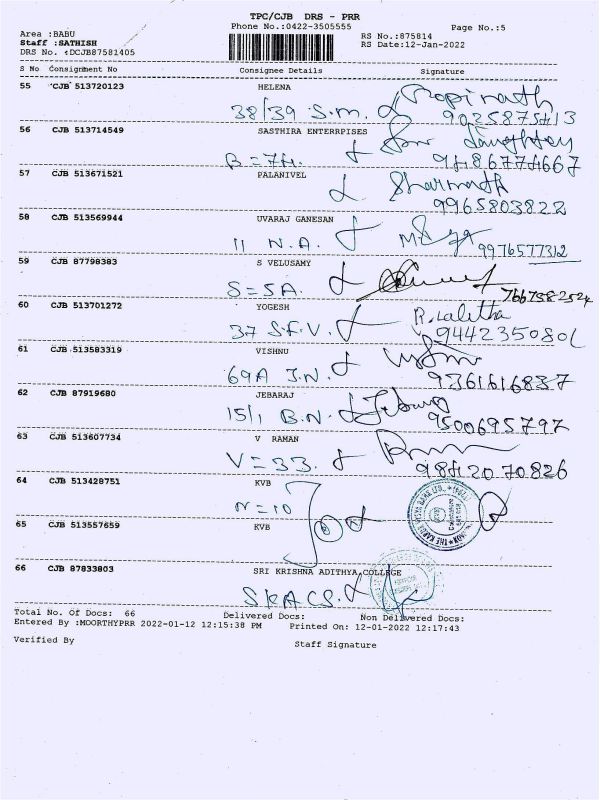 TPC/CJB DRS - PRR
Phone No.:0422-3505555
Page No.:5
Area :BABU
Staff :SATHISH
RS No.:875814
DRS No. :DCJB87581405
RS Date:12-Jan-2022
S No Consignment No Consignee Details Signature
55 CJB 513720123 HELENA
38/39 S.M. Gopinath
9025875413
56 CJB 513714549 SASTHIRA ENTERRPISES
B=74.
9486774667
57 CJB 513671521 PALANIVEL
9965803822
58 CJB 513569944 UVARAJ GANESAN
11 N.A. 9976577312
59 CJB 87798383 S VELUSAMY
S=5A. 7667382524
60 CJB 513701272 YOGESH
37 S.F.V. R. Lalitha
61 CJB 513583319 VISHNU
69A J.N.
9361616837
62 CJB 87919680 JEBARAJ
15/1 B.N.
9500695797
63 CJB 513607734 V RAMAN
V=33. Raman
9842070826
64 CJB 513428751 KVB
N=10
65 CJB 513557659 KVB
66 CJB 87833803 SRI KRISHNA ADITHYA COLLEGE
SKACS.
Total No. Of Docs: 66 Delivered Docs: Non Delivered Docs:
Entered By :MOORTHYPRR 2022-01-12 12:15:38 PM Printed On: 12-01-2022 12:17:43
Verified By Staff Signature